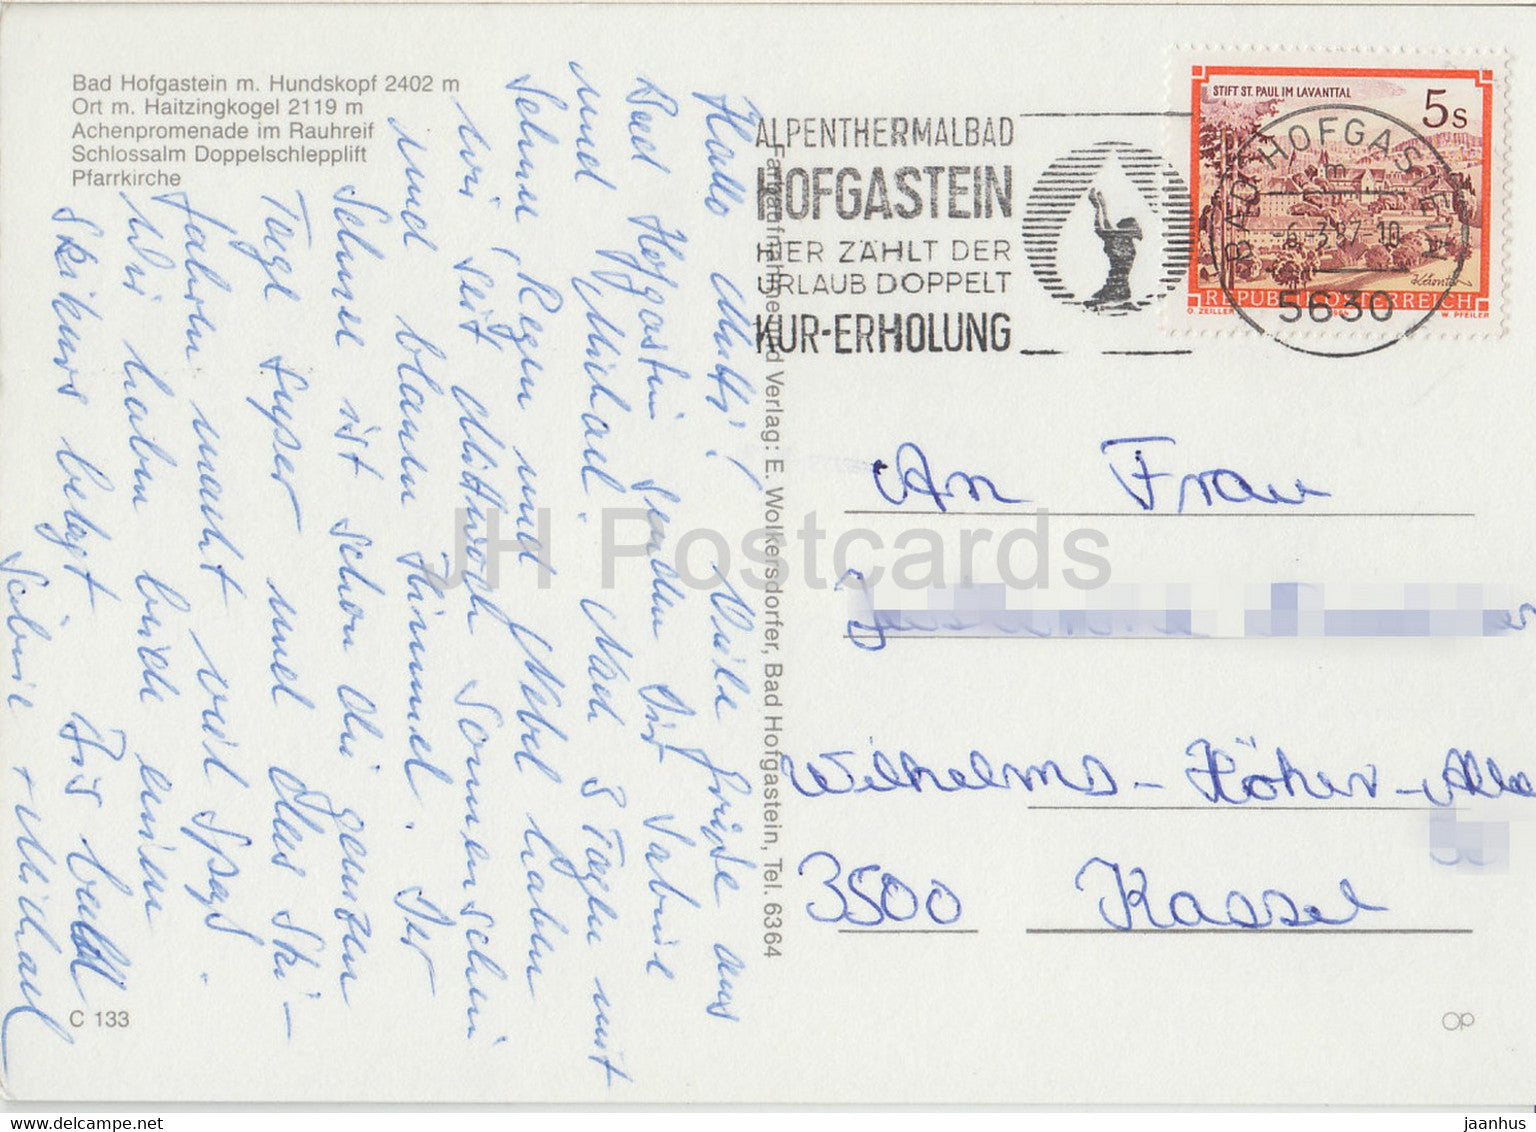 Bad Hofgastein m. Hundskopf 2402 m
Ort m. Haitzingkogel 2119 m
Achenpromenade im Rauhreif
Schlossalm Doppelschlepplift
Pfarrkirche
Hallo Mutti! Viele Grüße aus
Bad Hofgastein senden Dir Sabine
und Michael. Nach 3 Tagen mit
Schnee, Regen und Nebel haben
wir seit Mittwoch Sonnenschein
und blauen Himmel. Der
Schnee ist schon die ganzen
Tage super und das Ski-
fahren macht viel Spaß.
Wir haben beide einen
Skikurs belegt. Bis bald
Sabine + Michael
C 133
Farbaufnahme und Verlag: E. Wolkersdorfer, Bad Hofgastein, Tel. 6364
ALPENTHERMALBAD
HOFGASTEIN
HIER ZÄHLT DER
URLAUB DOPPELT
KUR-ERHOLUNG
STIFT ST. PAUL IM LAVANTTAL
5 S
REPUBLIK ÖSTERREICH
O. ZEILLER 1986 W. PFEILER
BAD HOFGASTEIN
m
-6.-3.87-10
5630
An Frau
Wilhelms-Höher-Allee
3500 Kassel
OP
JH Postcards
jaanhus